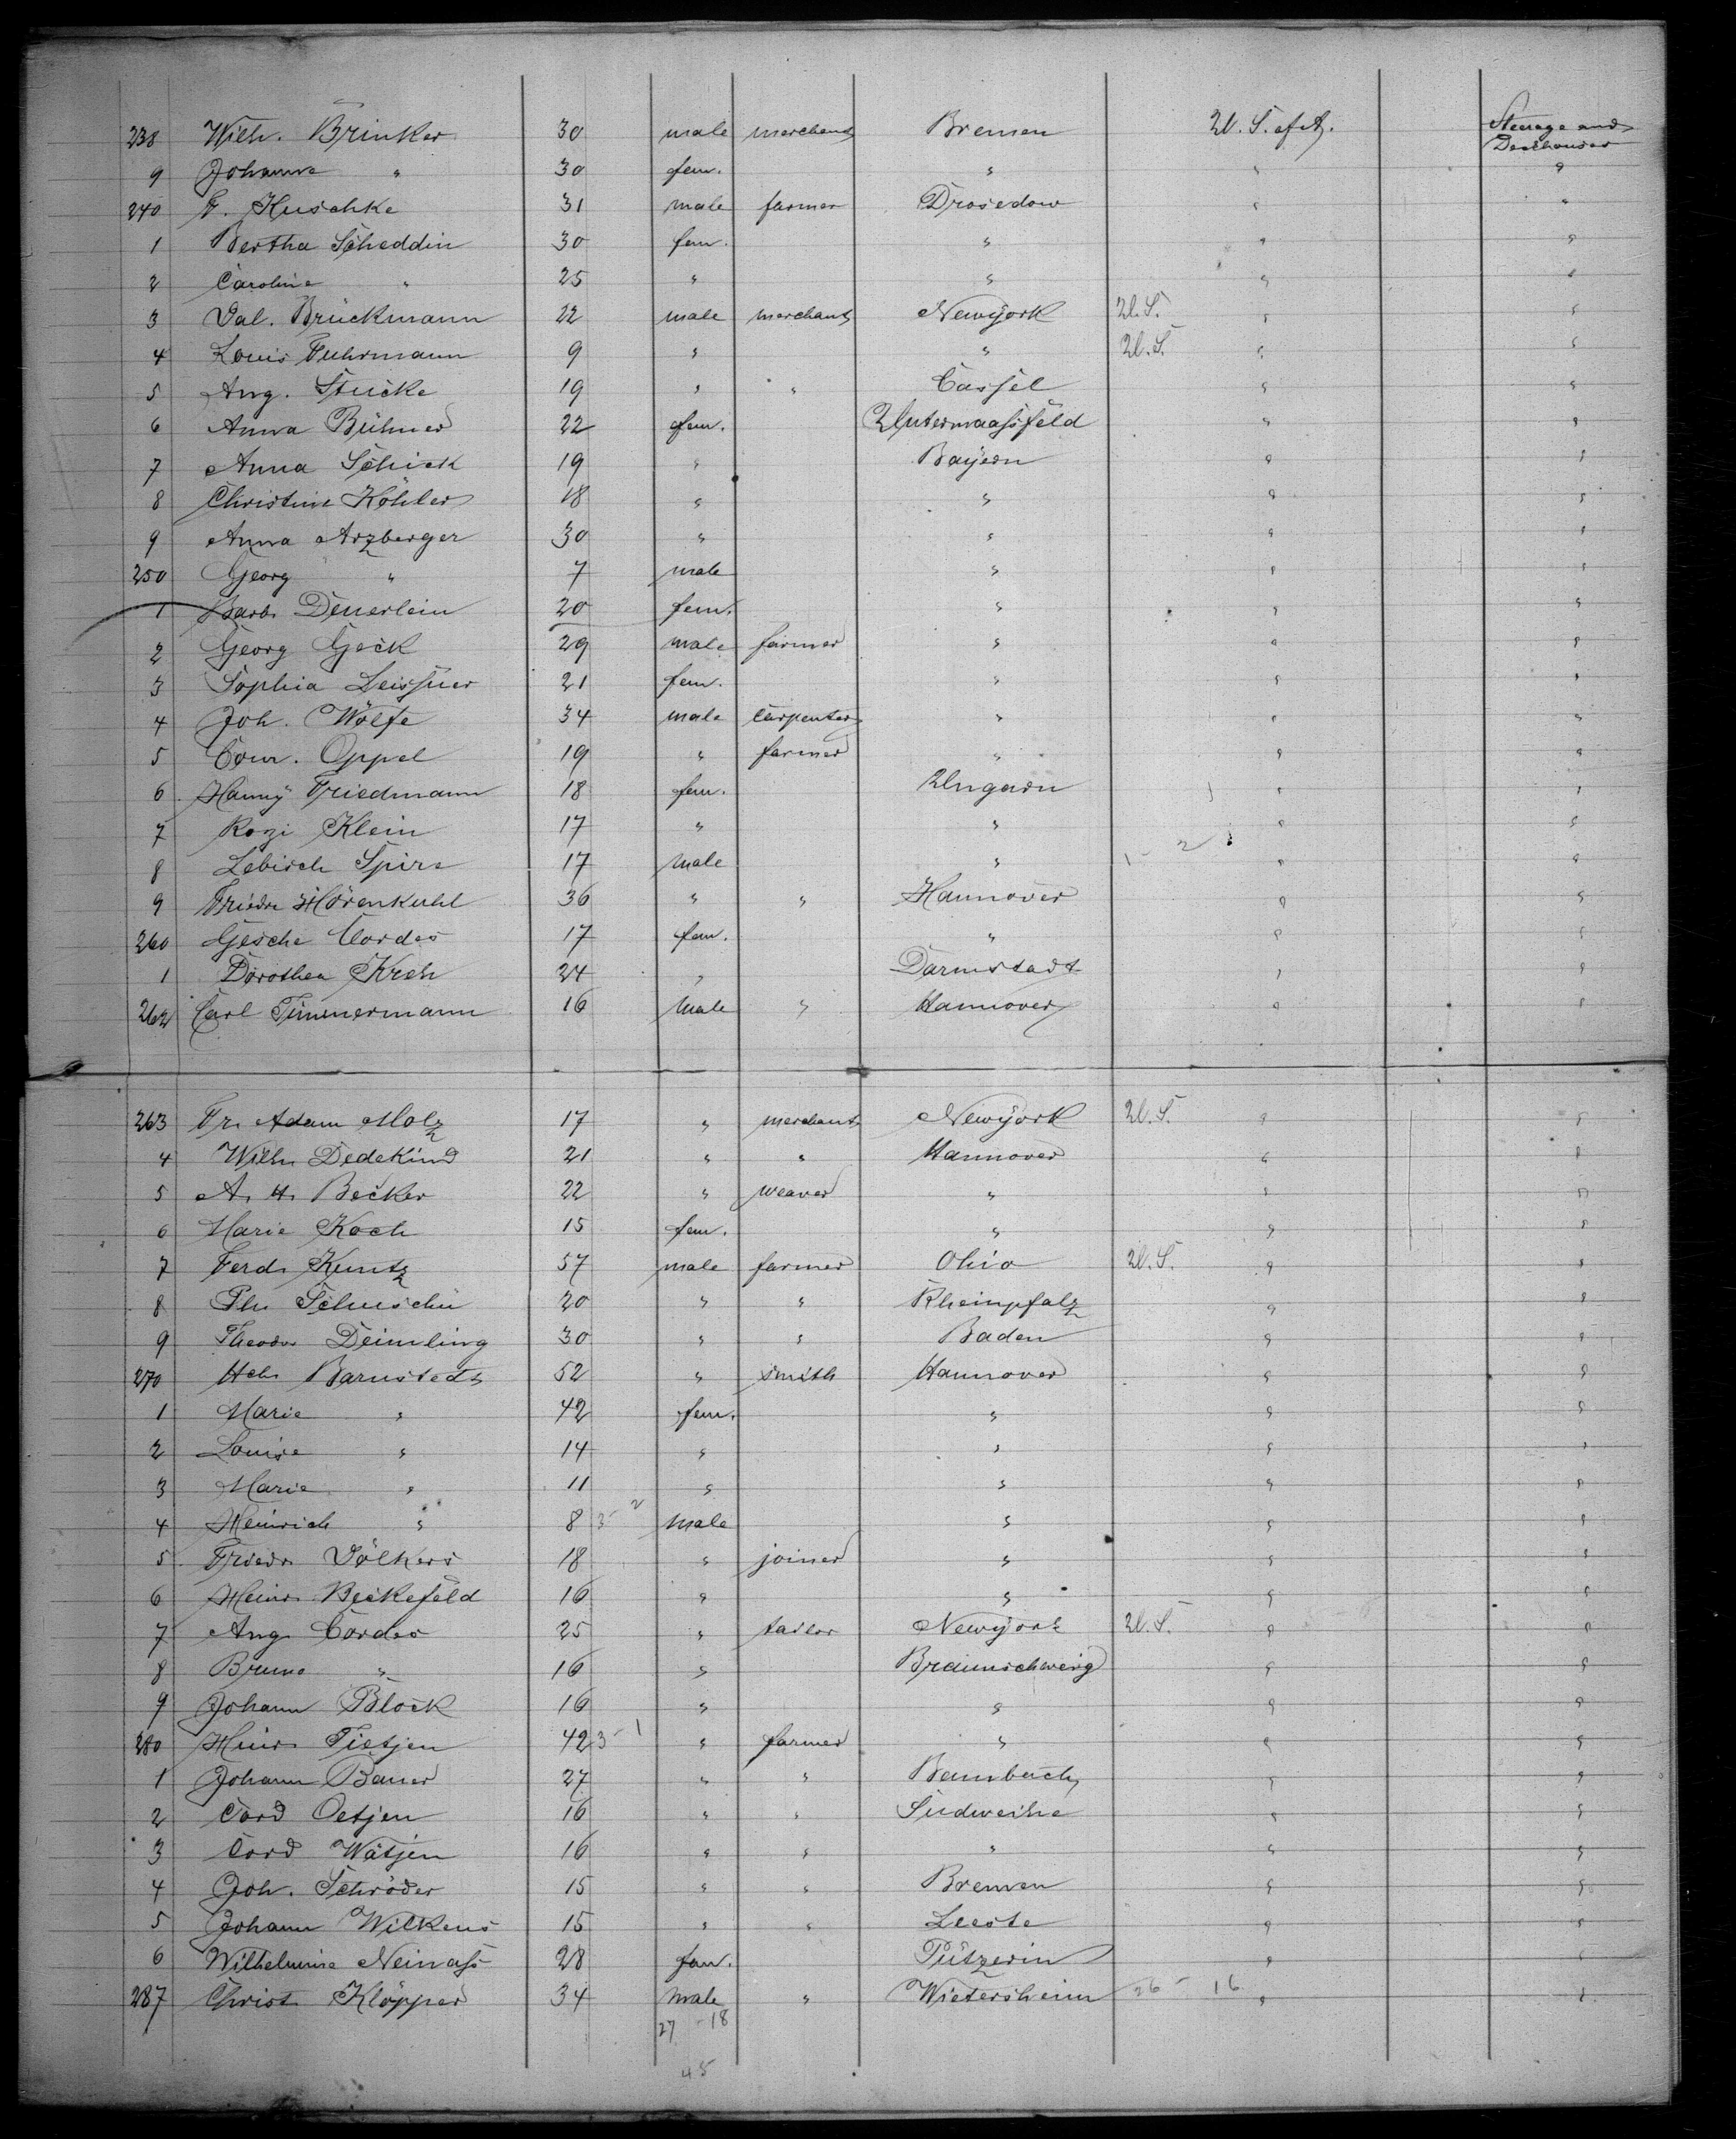 238 Wilh. Brinker 30 male merchant Bremen U. S. of A. Steerage and
Deckhouses
9 Johanne " 30 fem. " " "
240 F. Kuschke 31 male farmer Drosedow " "
1 Bertha Scheddin 30 fem. " " "
2 Caroline " 25 " " " "
3 Val. Brückmann 22 male merchant Newyork U. S. " "
4 Louis Fuhrmann 9 " " U. S. " "
5 Aug. Stücke 19 " " Cassel " "
6 Anna Bühner 22 fem. Untermaassfeld " "
7 Anna Schick 19 " Bayern " "
8 Christine Köhler 18 " " " "
9 Anna Arzberger 30 " " " "
250 Georg " 7 male " " "
1 Barb. Deuerlein 20 fem. " " "
2 Georg Geck 29 male farmer " " "
3 Sophia Leissner 21 fem. " " "
4 Joh. Wölfe 34 male carpenter " " "
5 Conr. Oppel 19 " farmer " " "
6 Hanny Friedmann 18 fem. Ungarn " "
7 Rozi Klein 17 " " " "
8 Lebisch Spira 17 male " 1 - 2 " "
9 Friedr. Hörenkuhl 36 " " Hannover " "
260 Gesche Cordes 17 fem. " " "
1 Dorothea Kreh 24 " Darmstadt " "
262 Carl Timmermann 16 male " Hannover " "
263 Fr. Adam Molz 17 " merchant Newyork U. S. " "
4 Wilh. Dedekind 21 " " Hannover " "
5 A. H. Becker 22 " weaver " " "
6 Marie Koch 15 fem. " " "
7 Ferd. Kuntz 57 male farmer Ohio U. S. " "
8 Ph. 20 " " Rheinpfalz " "
9 Theodor Deimling 30 " " Baden " "
270 Hch. Barnstedt 52 " smith Hannover " "
1 Marie " 42 fem. " " "
2 Louise " 14 " " " "
3 Marie " 11 " " " "
4 Heinrich " 8 3 - 2 male " " "
5 Friedr. Völkers 18 " joiner " " "
6 Heinr. Beckefeld 16 " " " "
7 Aug. Cordes 25 " tailor Newyork U. S. " "
8 Bruno " 16 " Braunschweig " "
9 Johann Block 16 " " " "
280 Heinr. Tietjen 42 3 - 1 " farmer " " "
1 Johann Bauer 27 " " Bambach " "
2 Cord Oetjen 16 " " Südweihe " "
3 Cord Wätjen 16 " " " " "
4 Joh. Schröder 15 " " Bremen " "
5 Johann Wilkens 15 " " Leeste " "
6 Wilhelmine Neinass 28 fem. Pützerin " "
287 Christ. Klöpper 34 male " Wietersheim 26 - 16 " "
27 - 18
45